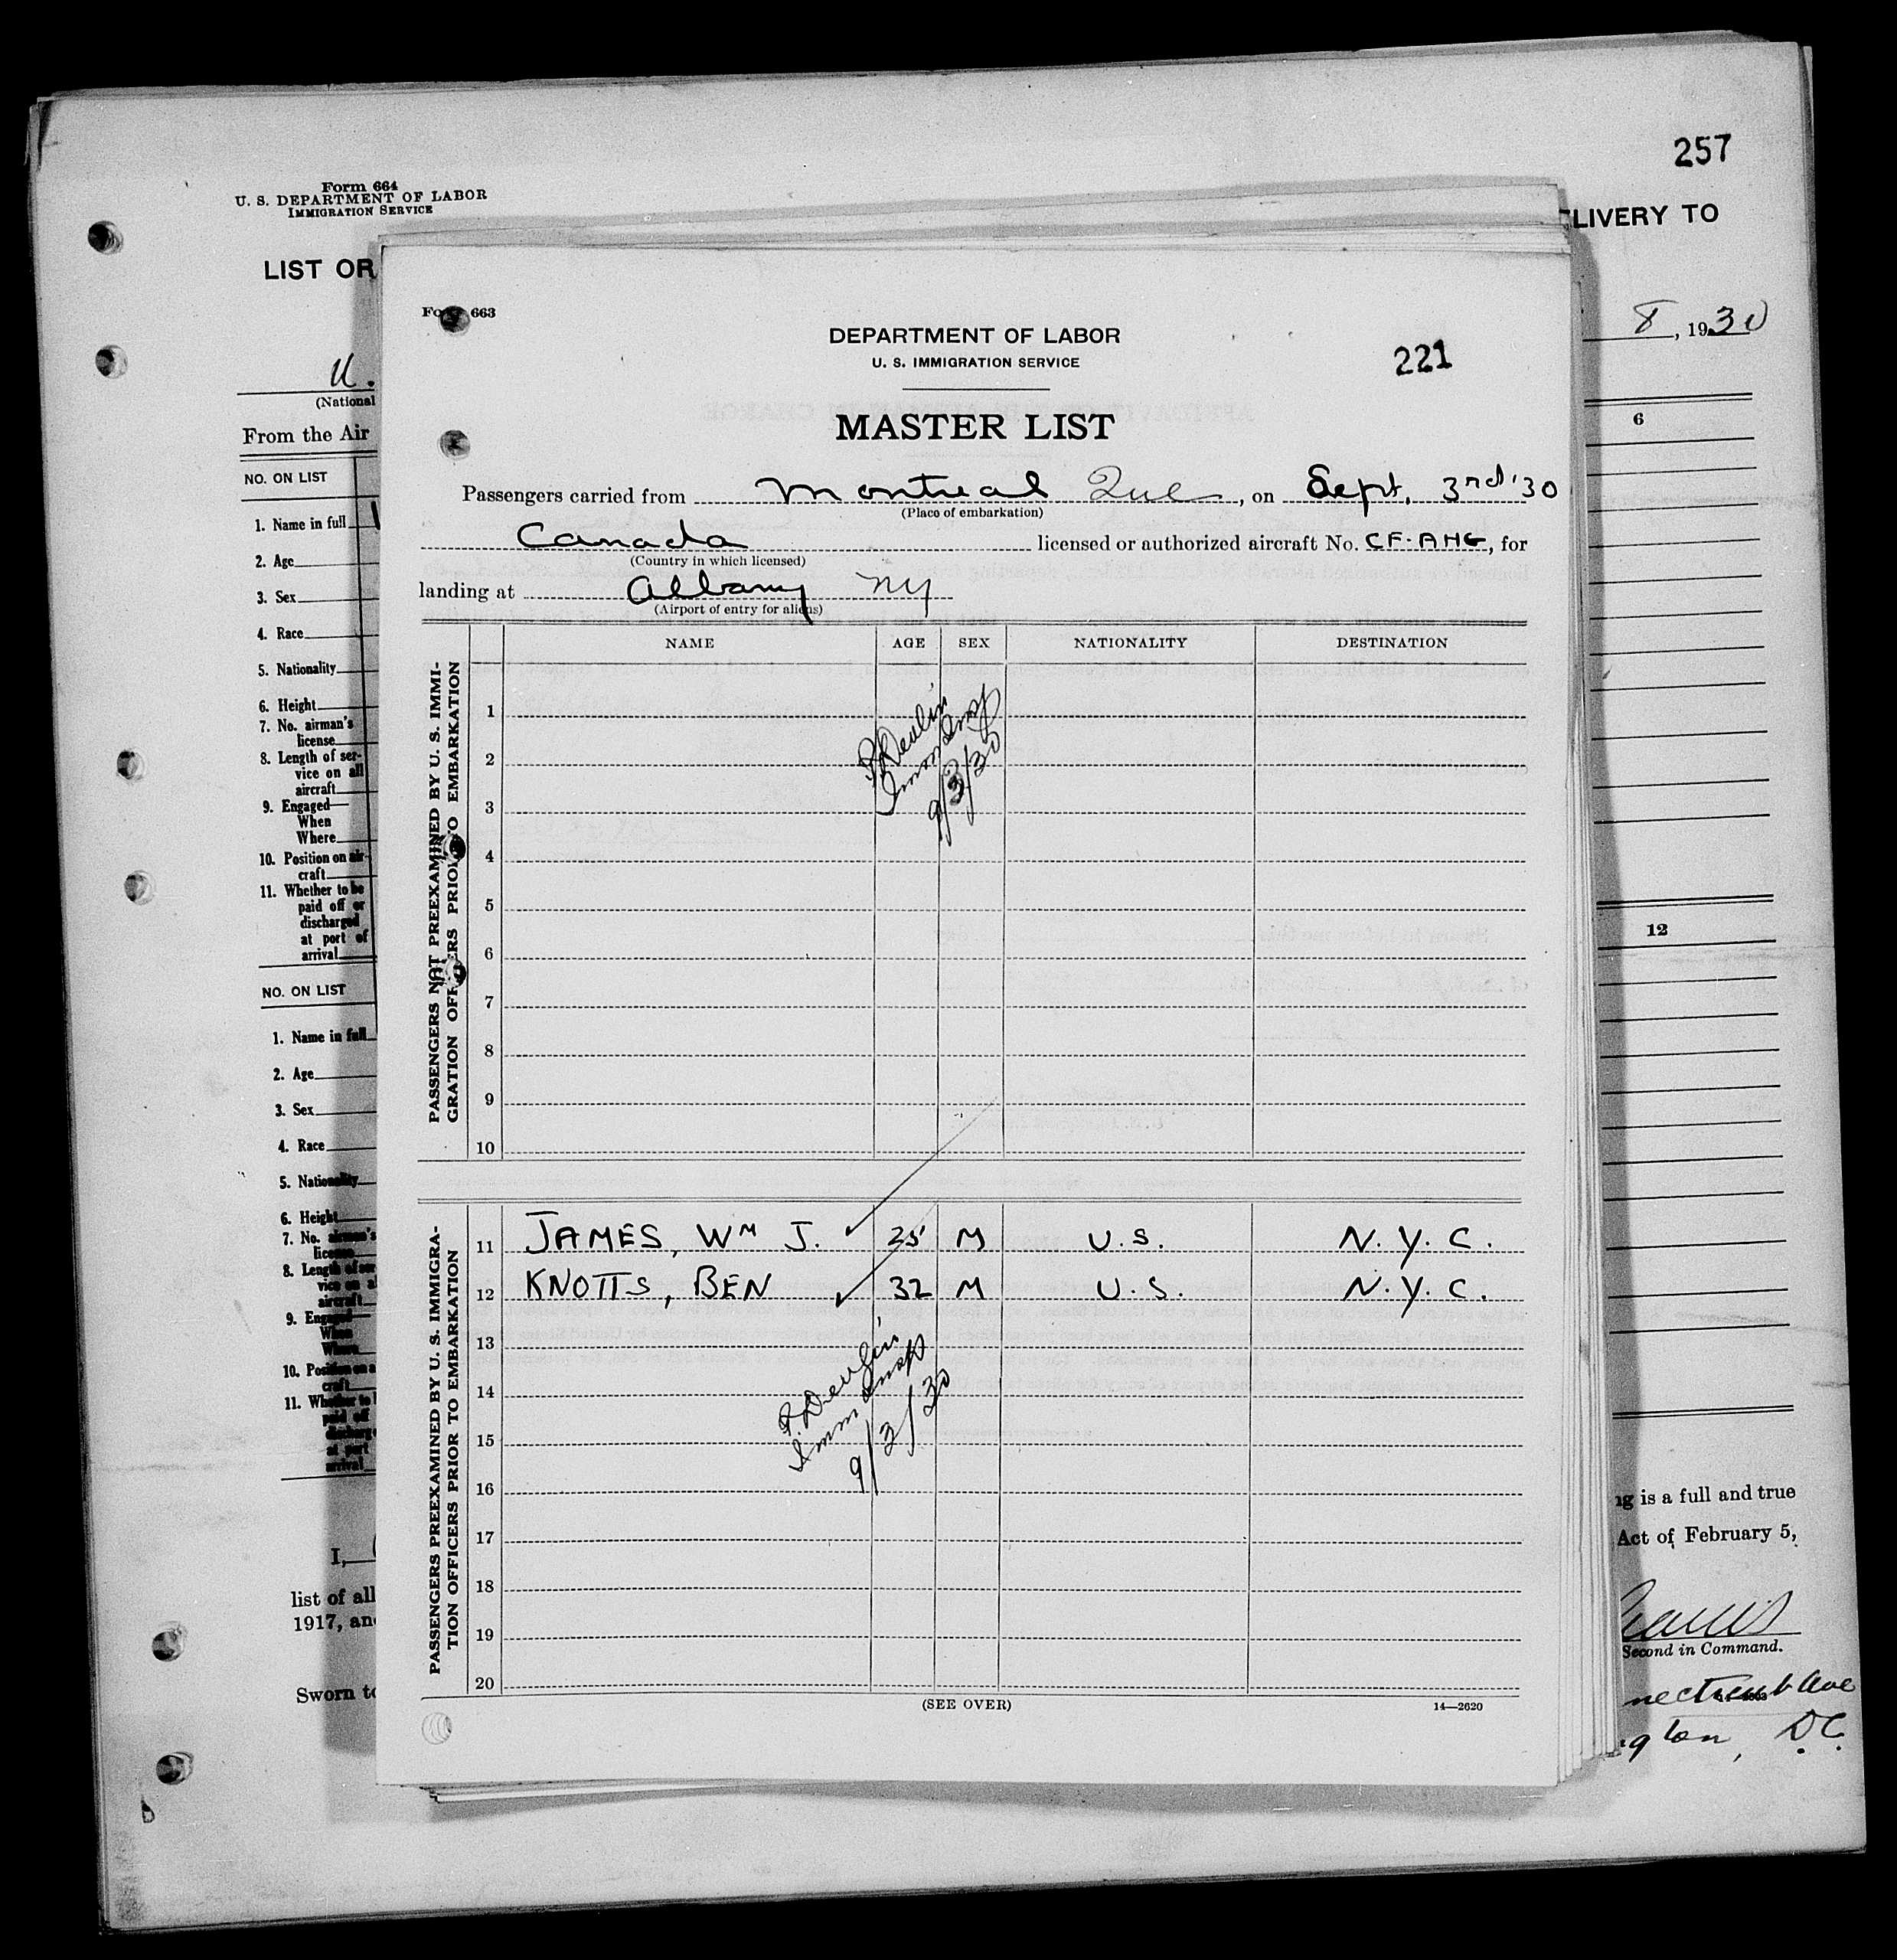 257
Form 664
U. S. DEPARTMENT OF LABOR
IMMIGRATION SERVICE
LIST OR
LIVERY TO
8, 1930
U.
(National
From the Air
6
NO. ON LIST
1. Name in full
2. Age
3. Sex
4. Race
5. Nationality
6. Height
7. No. airman's
license
8. Length of ser-
vice on all
aircraft
9. Engaged—
When
Where
10. Position on air-
craft
11. Whether to be
paid off or
discharged
at port of
arrival
12
NO. ON LIST
1. Name in full
2. Age
3. Sex
4. Race
5. Nationality
6. Height
7. No. airman's
license
8. Length of ser
vice on al
aircraft
9. Engaged
When
Where
10. Position on a
craft
11. Whether to b
paid off
discharg
at port
arrival
I,
ng is a full and true
list of all
Act of February 5,
1917, and
Second in Command.
Sworn to
necticut Ave
gton, D.C.
Form 663
DEPARTMENT OF LABOR
U. S. IMMIGRATION SERVICE
221
MASTER LIST
Passengers carried from Montreal Que, on Sept. 3rd '30
(Place of embarkation)
Canada licensed or authorized aircraft No. CF-AHG, for
(Country in which licensed)
landing at Albany NY
(Airport of entry for aliens)
NAME AGE SEX NATIONALITY DESTINATION
PASSENGERS NOT PREEXAMINED BY U. S. IMMI-
GRATION OFFICERS PRIOR TO EMBARKATION
1
2
3
4
5
6
7
8
9
10
P. Devlin
Imm Insp
9/3/30
PASSENGERS PREEXAMINED BY U. S. IMMIGRA-
TION OFFICERS PRIOR TO EMBARKATION
11 JAMES, WM J. 25 M U.S. N.Y.C.
12 KNOTTS, BEN 32 M U.S. N.Y.C.
13
14
15
16
17
18
19
20
P. Devlin
Imm Insp
9/3/30
(SEE OVER)
14—2620